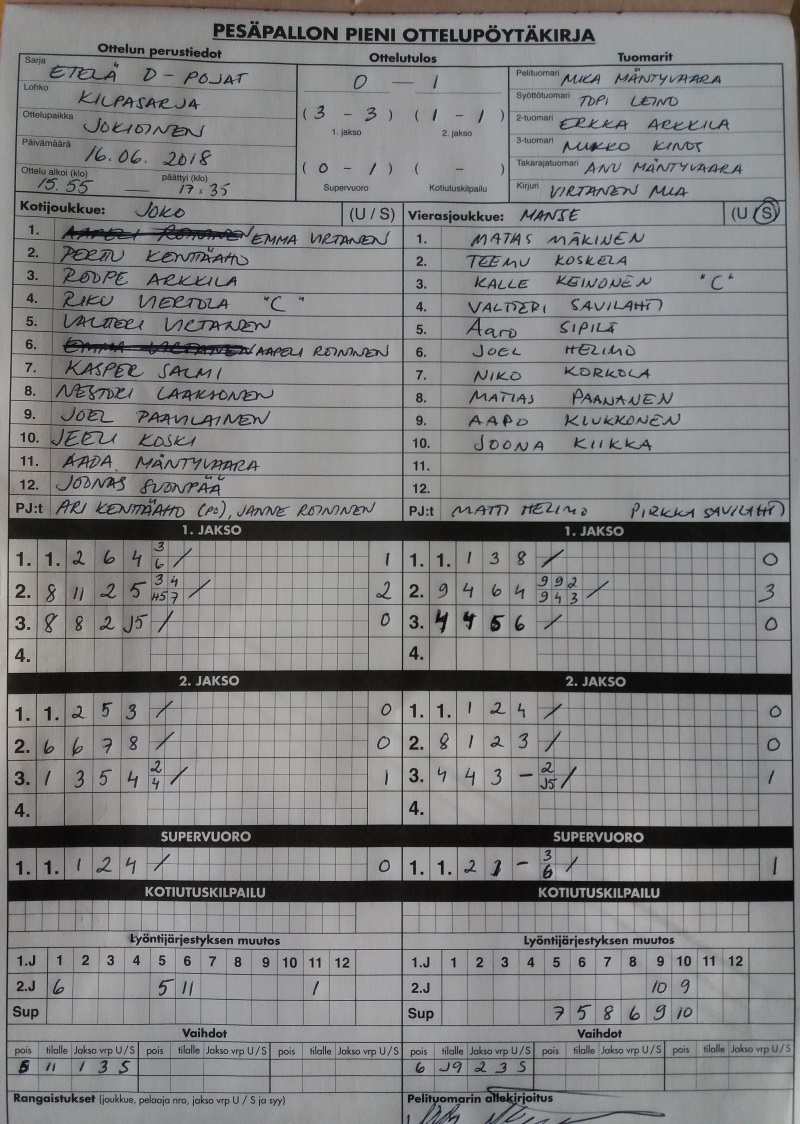 PESÄPALLON PIENI OTTELUPÖYTÄKIRJA
Ottelun perustiedot
Sarja ETELÄ D-POJAT
Lohko KILPASARJA
Ottelupaikka JOKIOINEN
Päivämäärä 16.06.2018
Ottelu alkoi (klo) 15.55 — päättyi (klo) 17.35
Ottelutulos
0 — 1
(3 - 3) (1 - 1)
1. jakso 2. jakso
(0 - 1) ( - )
Supervuoro Kotiutuskilpailu
Tuomarit
Pelituomari MIKA MÄNTYVAARA
Syöttötuomari TOPI LEINO
2-tuomari ERKKA ARKKILA
3-tuomari MIKKO KINOS
Takarajatuomari ANU MÄNTYVAARA
Kirjuri VIRTANEN MIA
Kotijoukkue: JOKO (U / S)
1. AAPELI ROININEN EMMA VIRTANEN
2. PERTTU KENTTÄAHO
3. ROOPE ARKKILA
4. RIKU VIERTOLA "C"
5. VALTTERI VIRTANEN
6. EMMA VIRTANEN AAPELI ROININEN
7. KASPER SALMI
8. NESTORI LAAKSONEN
9. JOEL PAAVILAINEN
10. JEELI KOSKI
11. AADA MÄNTYVAARA
12. JOONAS SUONPÄÄ
PJ:t ARI KENTTÄAHO (PO), JANNE ROININEN
Vierasjoukkue: MANSE (U / S)
1. MATIAS MÄKINEN
2. TEEMU KOSKELA
3. KALLE KEINONEN "C"
4. VALTTERI SAVILAHTI
5. Aaro SIPILÄ
6. JOEL HELIMO
7. NIKO KORKOLA
8. MATIAS PAANANEN
9. AAPO KIUKKONEN
10. JOONA KIIKKA
11.
12.
PJ:t MATTI HELIMO PIRKKA SAVILAHTI
1. JAKSO
1. 1. 2 6 4 3 6 / 1
2. 8 11 2 5 3 4 H5 7 / 2
3. 8 8 2 J5 / 0
4.
1. JAKSO
1. 1. 1 3 8 / 0
2. 9 4 6 4 9 9 2 9 4 3 / 3
3. 4 4 5 6 / 0
4.
2. JAKSO
1. 1. 2 5 3 / 0
2. 6 6 7 8 / 0
3. 1 3 5 4 2 4 / 1
4.
2. JAKSO
1. 1. 1 2 4 / 0
2. 8 1 2 3 / 0
3. 4 4 3 - 2 J5 / 1
4.
SUPERVUORO
1. 1. 1 2 4 / 0
SUPERVUORO
1. 1. 2 1 - 3 6 / 1
KOTIUTUSKILPAILU
KOTIUTUSKILPAILU
Lyöntijärjestyksen muutos
1.J 1 2 3 4 5 6 7 8 9 10 11 12
2.J 6 5 11 1
Sup
Lyöntijärjestyksen muutos
1.J 1 2 3 4 5 6 7 8 9 10 11 12
2.J 10 9
Sup 7 5 8 6 9 10
Vaihdot
pois tilalle Jakso vrp U / S pois tilalle Jakso vrp U / S
5 11 1 3 S
Vaihdot
pois tilalle Jakso vrp U / S pois tilalle Jakso vrp U / S pois tilalle Jakso vrp U / S
6 J9 2 3 S
Rangaistukset (joukkue, pelaaja nro, jakso vrp U / S ja syy)
Pelituomarin allekirjoitus